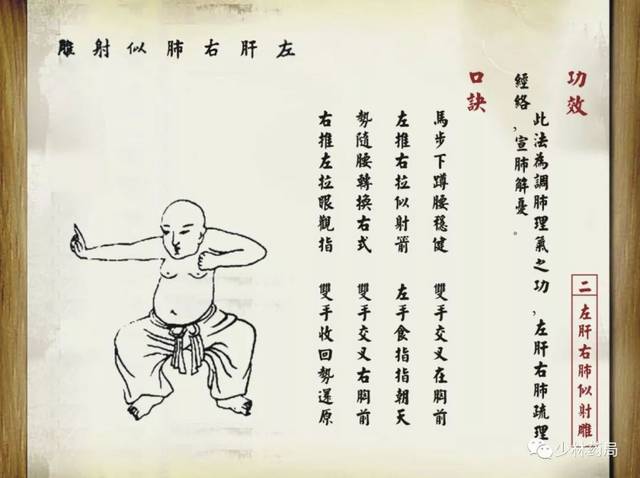 左肝右肺似射雕
二 左肝右肺似射雕
功效
此法為調肺理氣之功,左肝右肺疏理
經絡,宣肺解憂。
口訣
馬步下蹲腰穩健 雙手交叉在胸前
左推右拉似射箭 左手食指指朝天
勢隨腰轉換右式 雙手交叉右胸前
右推左拉眼觀指 雙手收回勢還原
少林药局